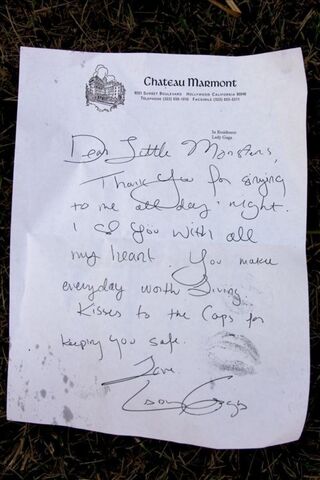 Chateau Marmont
8221 Sunset Boulevard Hollywood California 90046
Telephone (323) 656-1010 Facsimile (323) 655-5311
In Residence
Lady Gaga
Dear Little Monsters,
Thank You for singing
to me all day & night.
I ♡ You with all
my heart. You make
everyday worth living
Kisses to the Cops for
keeping you safe.
Love
Lady Gaga